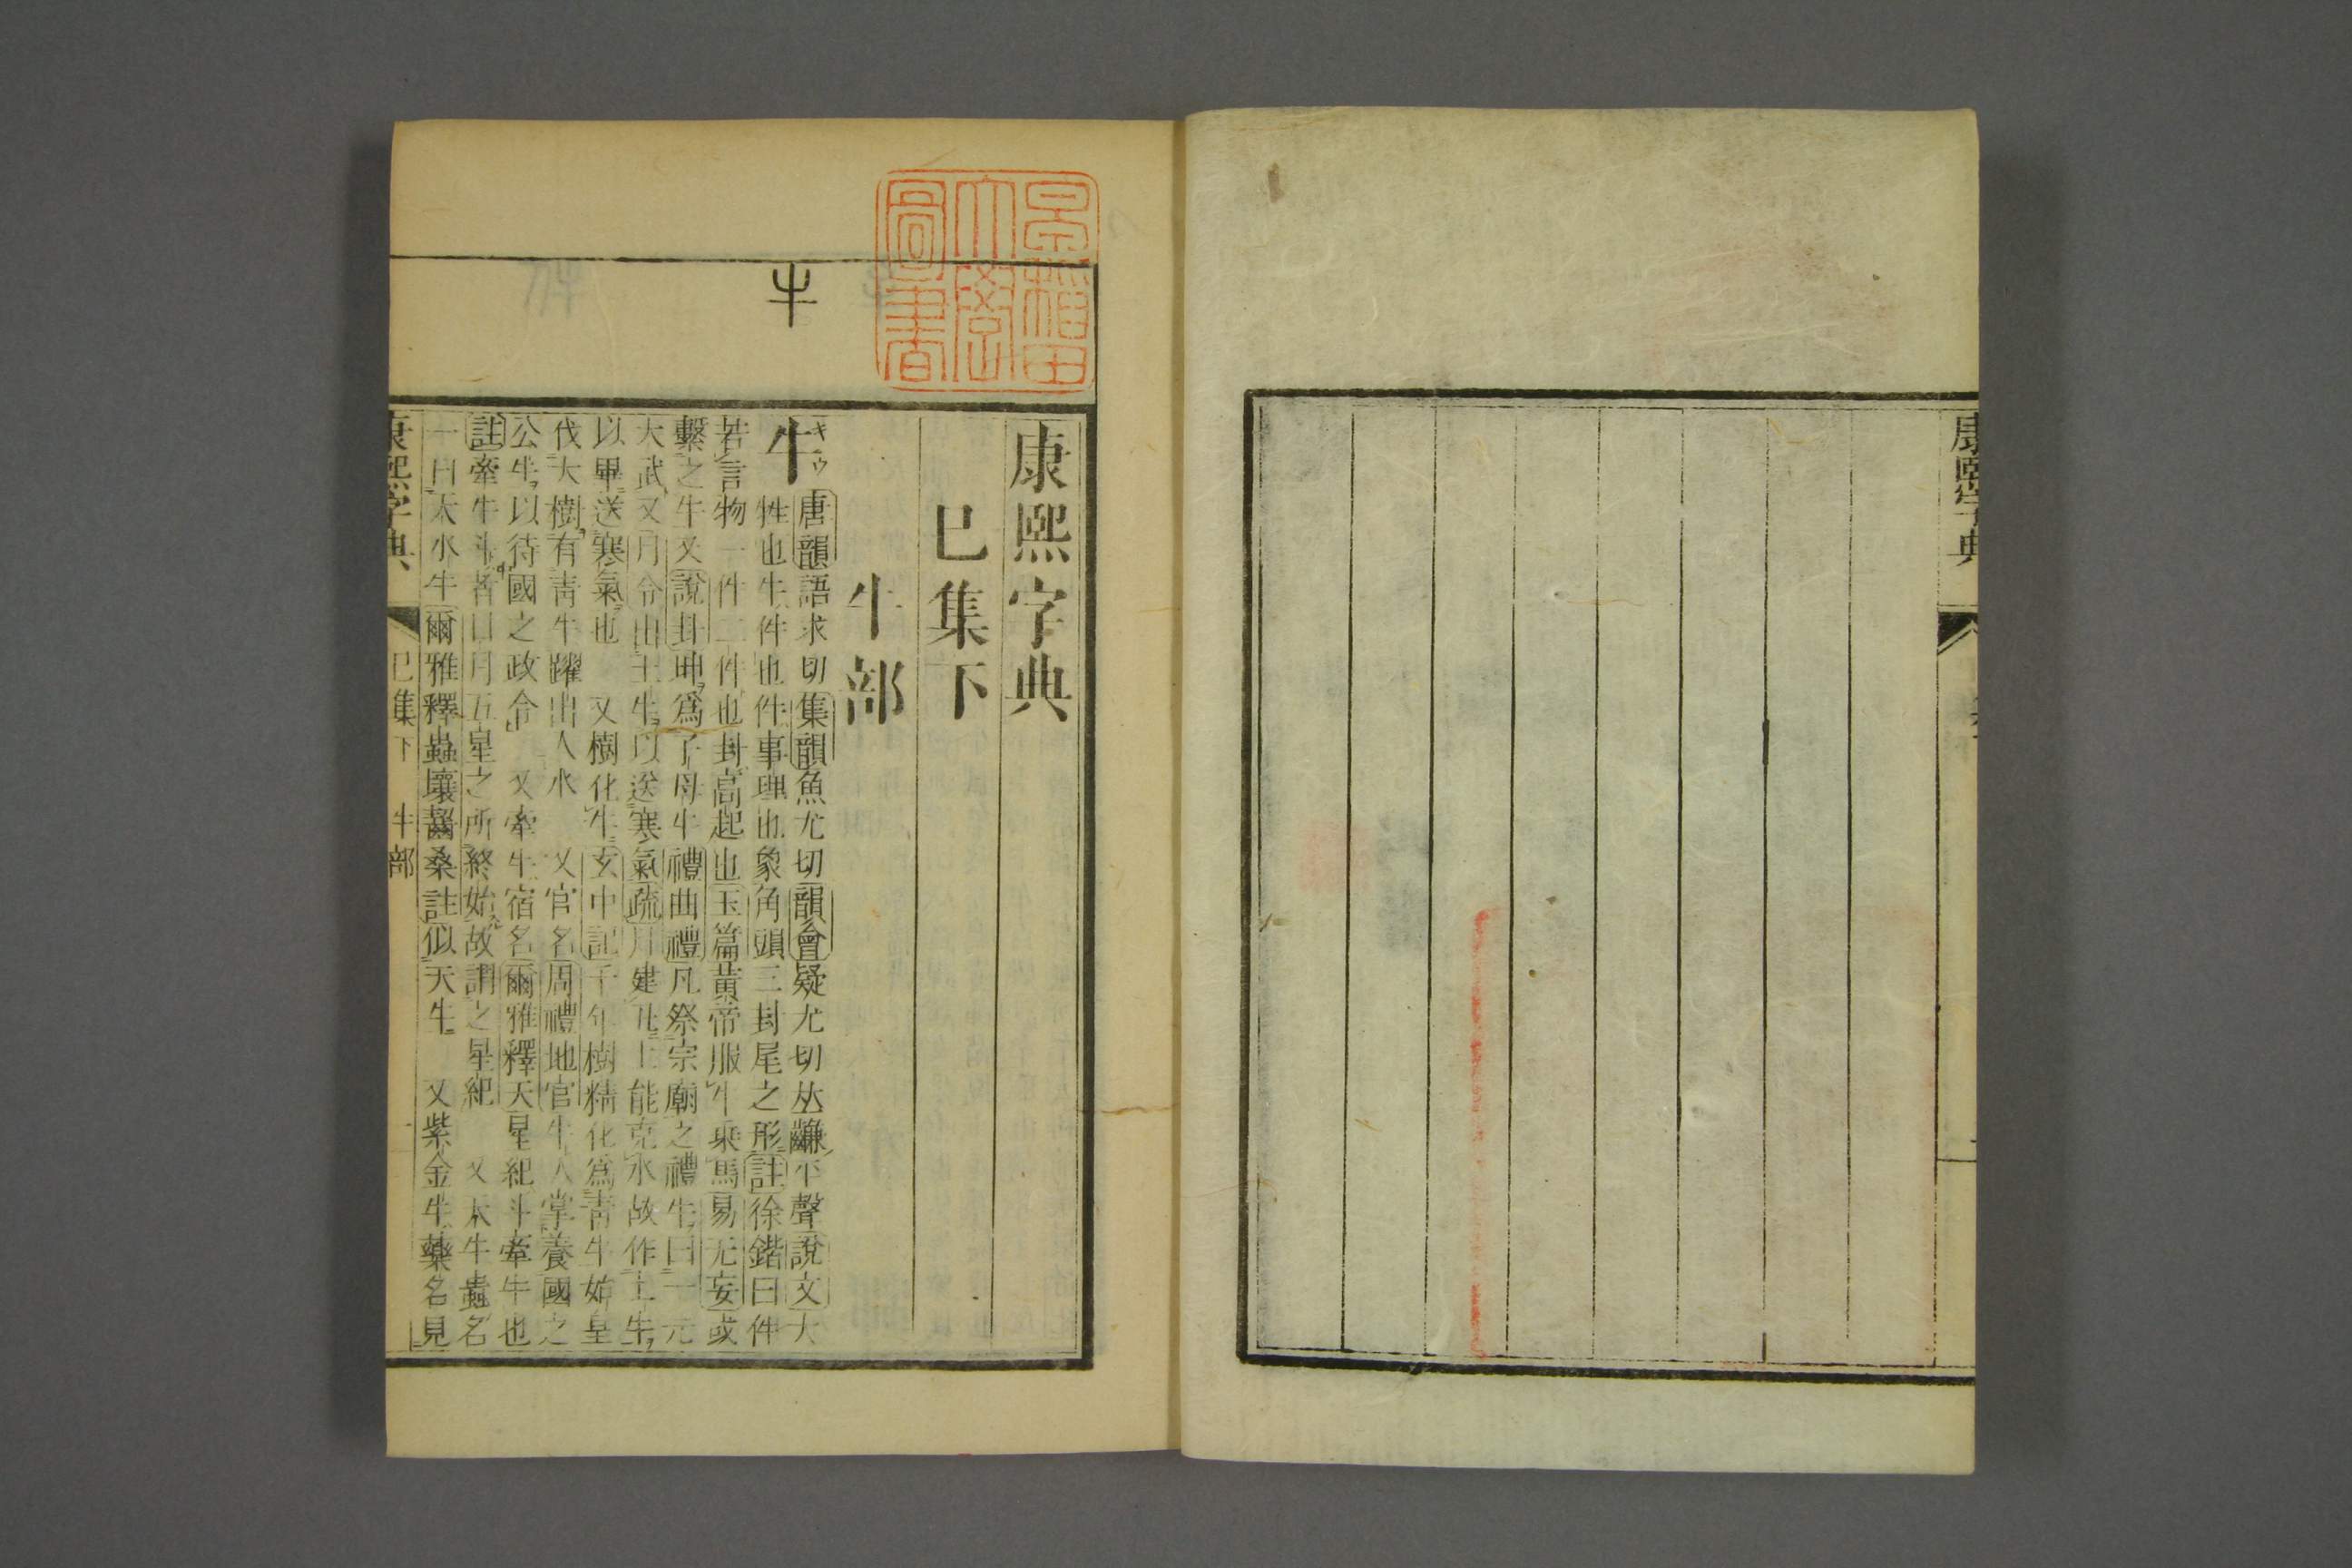 康熙字典
早稲田
大學
圖書
康熙字典
巳集下
牛部
牛
キウ
牛
唐韻語求切集韻魚尤切韻會疑尤切𠀤𪙊平聲說文大
牲也牛件也件事理也象角頭三封尾之形註徐鍇曰件
若言物一件二件也封高起也玉篇黃帝服牛乘馬易无妄或
繫之牛又說卦坤爲子母牛禮曲禮凡祭宗廟之禮牛曰一元
大武又月令出土牛以送寒氣疏月建丑土能克水故作土牛
以畢送寒氣也 又樹化牛玄中記千年樹精化爲靑牛始皇
伐大樹有靑牛躍出入水 又官名周禮地官牛人掌養國之
公牛以待國之政令 又牽牛宿名爾雅釋天星紀斗牽牛也
註牽牛斗者日月五星之所終始故謂之星紀 又天牛蟲名
一曰天水牛爾雅釋蟲蠰齧桑註似天牛 又紫金牛藥名見
康熙字典
巳集下
牛部
一